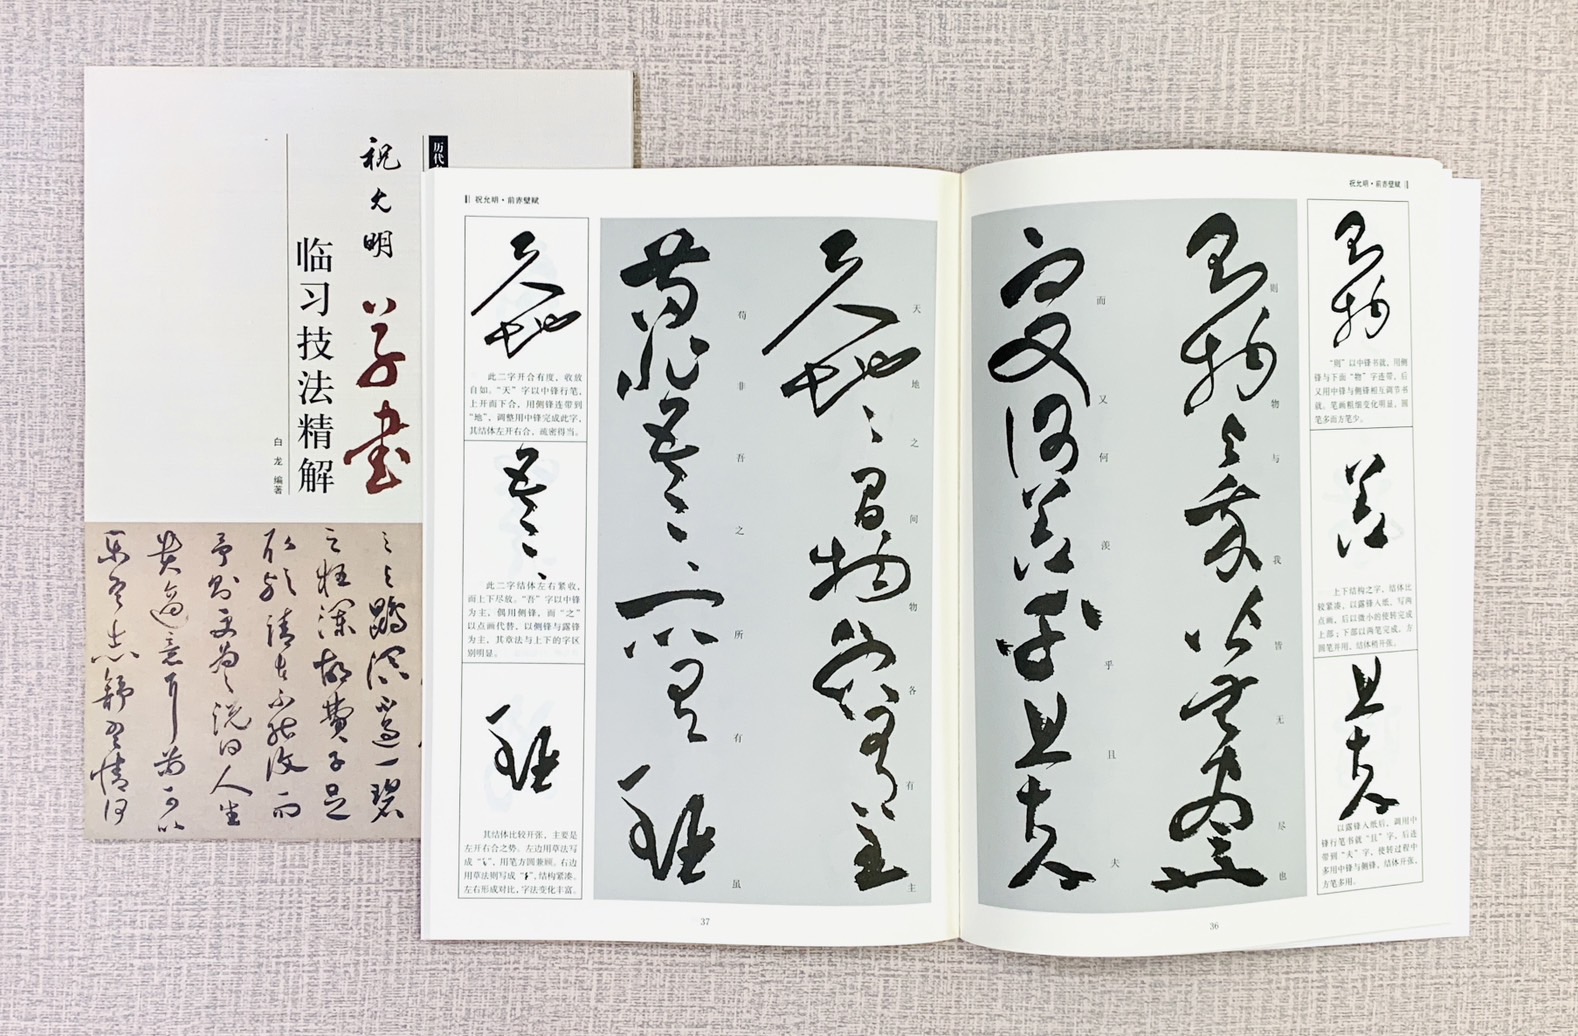 历代
祝允明
草书
临习技法精解
白龙 编著
祝允明·前赤壁赋
則物
“则”以中锋书就，用侧
锋与下面“物”字连带，后
又用中锋与侧锋相互调节书
就。笔画粗细变化明显，圆
笔多而方笔少。
羡
上下结构之字，结体比
较紧凑，以露锋入纸，写两
点画，后以微小的使转完成
上部；下部以两笔完成，方
圆笔并用，结体稍开张。
且夫
以露锋入纸后，调用中
锋行笔书就“且”字，后连
带到“夫”字，使转过程中
多用中锋与侧锋，结体开张，
方笔多用。
則物與我皆無盡也
则物与我皆无尽也
而又何羡乎且夫
而又何羡乎且夫
36
祝允明·前赤壁赋
天地之間物各有主
天地之间物各有主
苟非吾之所有雖
苟非吾之所有虽
天地
此二字开合有度，收放
自如。“天”字以中锋行笔，
上开而下合，用侧锋连带到
“地”，调整用中锋完成此字，
其结体左开右合，疏密得当。
吾之
此二字结体左右紧收，
而上下尽放。“吾”字以中锋
为主，偶用侧锋，而“之”
以点画代替，以侧锋与露锋
为主，其章法与上下的字区
别明显。
雖
其结体比较开张，主要是
左开右合之势。左边用草法写
成“”，用笔方圆兼顾。右边
用草法则写成“”，结构紧凑。
左右形成对比，字法变化丰富。
37